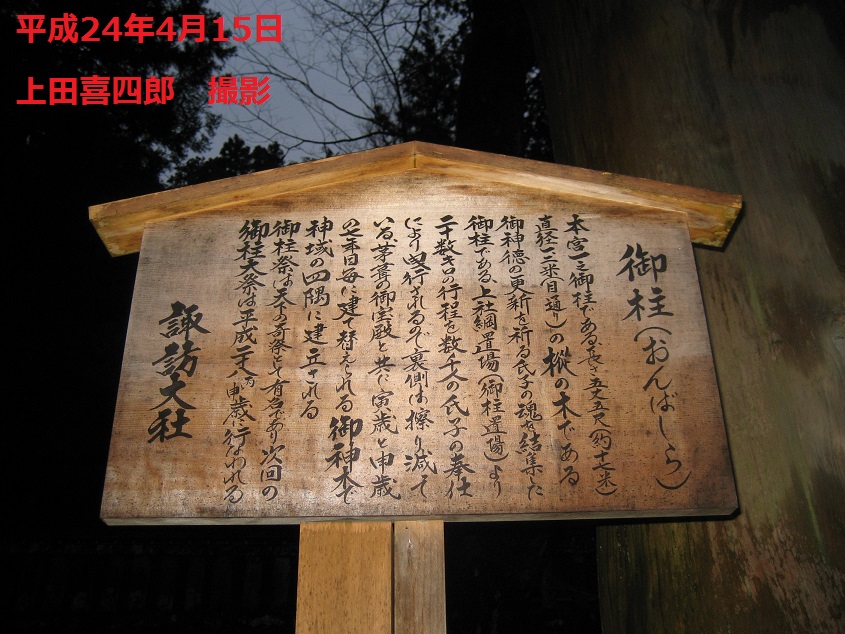 平成24年4月15日
上田喜四郎　撮影
御柱(おんばしら)
本宮一之御柱である、長さ五丈五尺(約十七米)
直径一、二米(目通り)の樅の木である
御神徳の更新を祈る氏子の魂を結集した
御柱である、上社綱置場(御柱置場)より
二十数キロの行程を数千人の氏子の奉仕
により曳行されるので裏側は擦り減って
いる、茅葺の御宝殿と共に寅歳と申歳
の七年目毎に建て替えられる御神木で
神域の四隅に建立される
御柱祭は天下の奇祭として有名であり次回の
御柱大祭は平成二十八(申)歳に行なわれる
諏訪大社